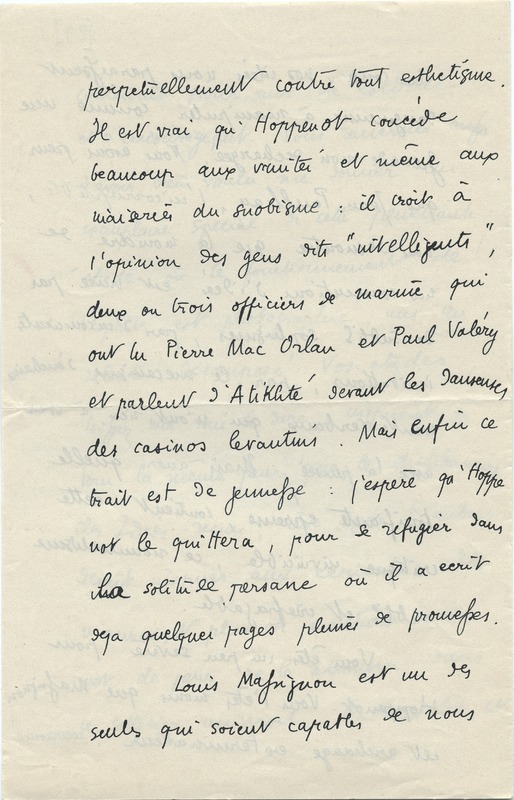 perpetuellement contre tout esthetisme.
Il est vrai qu'Hoppenot concède
beaucoup aux vanités et même aux
niaiseries du snobisme : il croit à
l'opinion des gens dits "intelligents",
deux ou trois officiers de marine qui
ont lu Pierre Mac Orlan et Paul Valéry
et parlent d'Atikhté devant les danseuses
des casinos levantins. Mais enfin ce
trait est de jeunesse : j'espère qu'Hoppe
not le quittera, pour se refugier dans
la solitude persane où il a ecrit
deja quelques pages pleines de promesses.
Louis Massignon est un des
seuls qui soient capables de nous